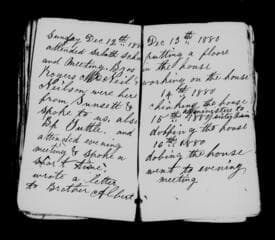 Sunday Dec 12th 1880
attended Sabath school
and Meeting. Bros
Rogers McNeil &
Neilson were here
from Sunsett &
spoke to us. also
Bp Tuttle. and
attended evening
meeting & spoke a
short time.
wrote a letter
to Brother Albert
Dec 13th 1880
putting a floore
in the house
working on the house
14th 1880
chinking the house
15th 1880
dobbing the house
16th 1880
dobing the house
went to evening
meeting